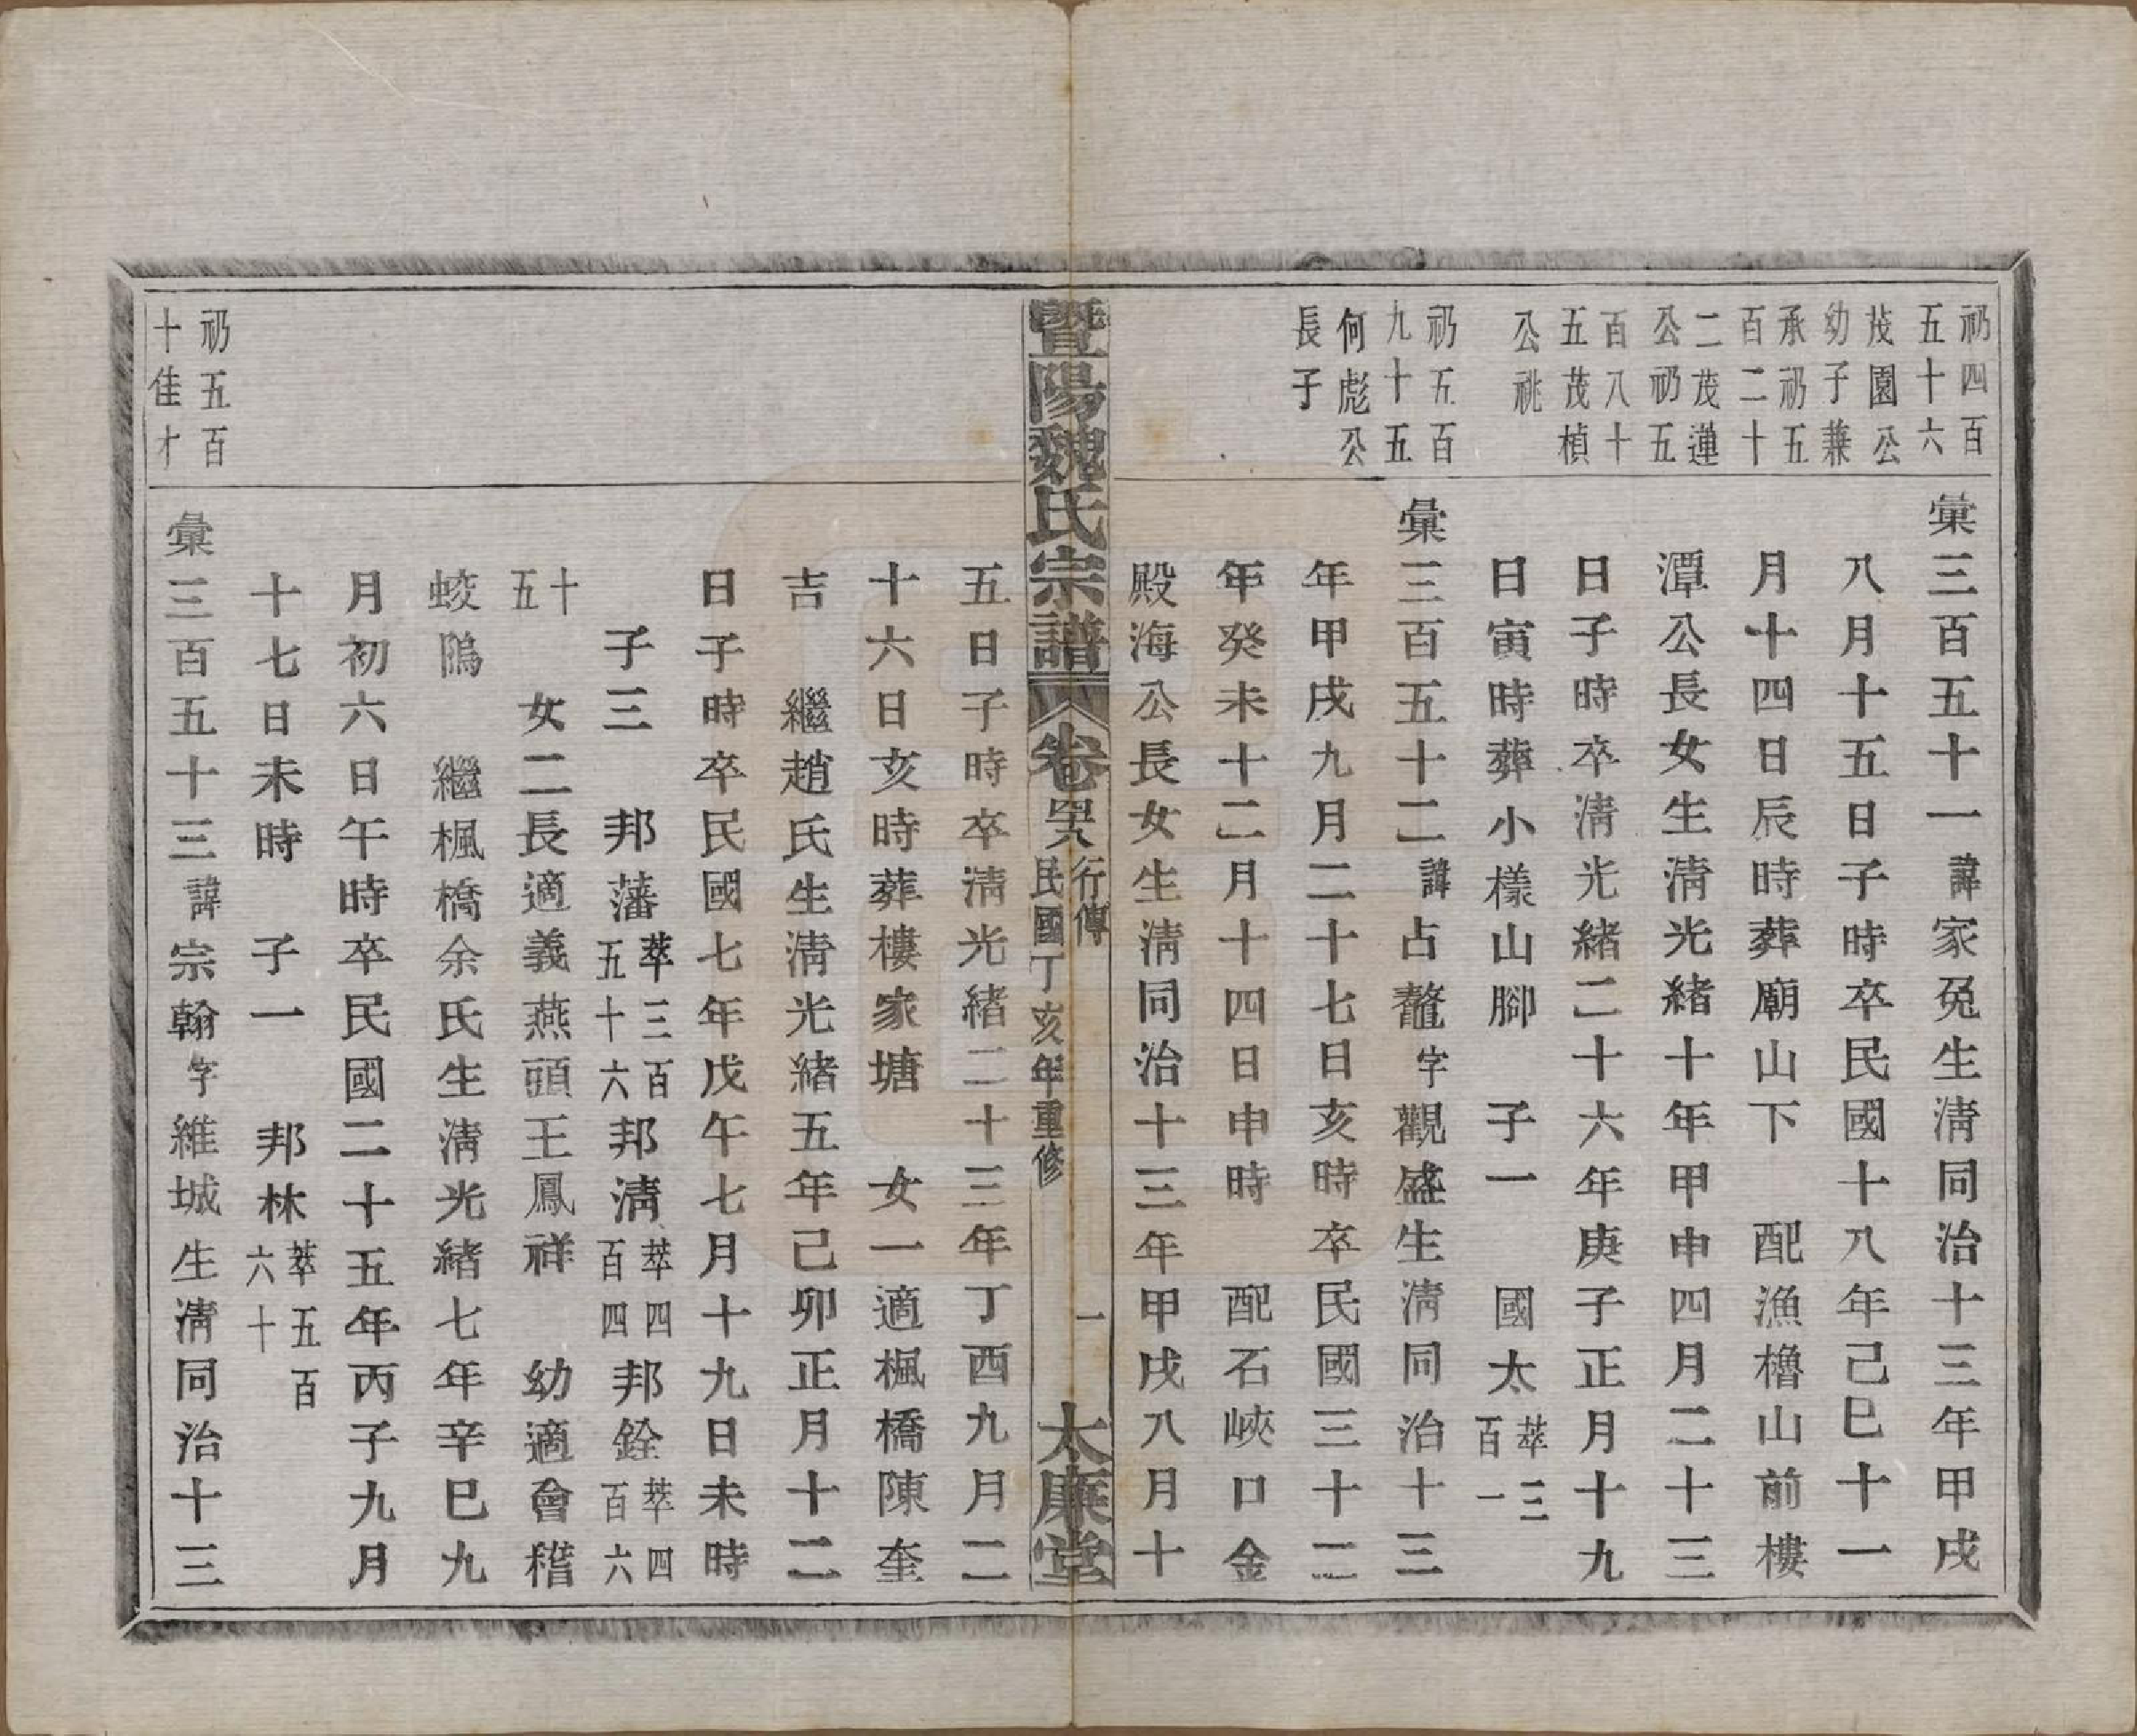 礽四百
五十六
茂園公
幼子兼
承礽五
百二十
二茂蓮
公礽五
百八十
五茂楨
公祧
彙三百五十一諱家兔生淸同治十三年甲戌
八月十五日子時卒民國十八年己巳十一
月十四日辰時葬廟山下 配漁櫓山前樓
潭公長女生淸光緒十年甲申四月二十三
日子時卒淸光緒二十六年庚子正月十九
日寅時葬小樣山腳 子一 國太萃三
百一
礽五百
九十五
何彪公
長子
彙三百五十二諱占鼇字觀盛生淸同治十三
年甲戌九月二十七日亥時卒民國三十二
年癸未十二月十四日申時 配石峽口金
殿海公長女生淸同治十三年甲戌八月十
暨陽魏氏宗譜
卷
行傳
民國丁亥年重修
一
太廉堂
五日子時卒淸光緒二十三年丁酉九月二
十六日亥時葬樓家塘 女一適楓橋陳奎
吉 繼趙氏生淸光緒五年己卯正月十二
日子時卒民國七年戊午七月十九日未時
子三 邦藩萃三百
五十六邦淸萃四
百四四邦銓萃四
百六
十
五 女二長適義燕頭王鳳祥 幼適會稽
蛟隝 繼楓橋余氏生淸光緒七年辛巳九
月初六日午時卒民國二十五年丙子九月
十七日未時 子一 邦林萃五百
六十
礽五百
十佳才
彙三百五十三諱宗翰字維城生淸同治十三